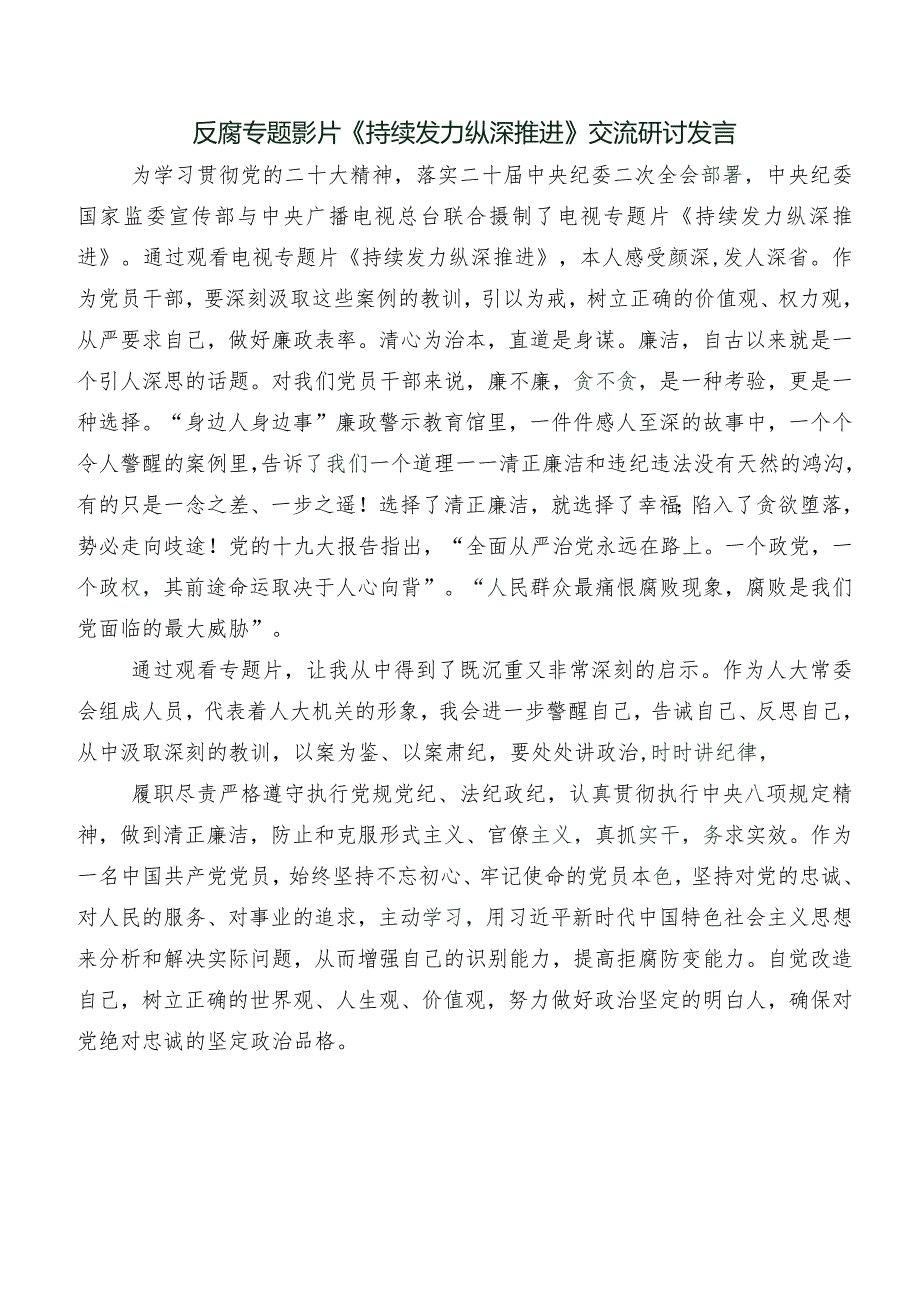 反腐专题影片《持续发力纵深推进》交流研讨发言
为学习贯彻党的二十大精神，落实二十届中央纪委二次全会部署，中央纪委
国家监委宣传部与中央广播电视总台联合摄制了电视专题片《持续发力纵深推
进》。通过观看电视专题片《持续发力纵深推进》，本人感受颜深,发人深省。作
为党员干部，要深刻汲取这些案例的教训，引以为戒，树立正确的价值观、权力观，
从严要求自己，做好廉政表率。清心为治本，直道是身谋。廉洁，自古以来就是一
个引人深思的话题。对我们党员干部来说，廉不廉，贪不贪，是一种考验，更是一
种选择。“身边人身边事”廉政警示教育馆里，一件件感人至深的故事中，一个个
令人警醒的案例里,告诉了我们一个道理一一清正廉洁和违纪违法没有天然的鸿沟，
有的只是一念之差、一步之遥！选择了清正廉洁，就选择了幸福;陷入了贪欲堕落，
势必走向歧途！党的十九大报告指出，“全面从严治党永远在路上。一个政党，一
个政权，其前途命运取决于人心向背”。“人民群众最痛恨腐败现象，腐败是我们
党面临的最大威胁”。
通过观看专题片，让我从中得到了既沉重又非常深刻的启示。作为人大常委
会组成人员，代表着人大机关的形象，我会进一步警醒自己，告诫自己、反思自己，
从中汲取深刻的教训，以案为鉴、以案肃纪，要处处讲政治,时时讲纪律，
履职尽责严格遵守执行党规党纪、法纪政纪，认真贯彻执行中央八项规定精
神，做到清正廉洁，防止和克服形式主义、官僚主义，真抓实干，务求实效。作为
一名中国共产党党员，始终坚持不忘初心、牢记使命的党员本色，坚持对党的忠诚、
对人民的服务、对事业的追求，主动学习，用习近平新时代中国特色社会主义思想
来分析和解决实际问题，从而增强自己的识别能力，提高拒腐防变能力。自觉改造
自己，树立正确的世界观、人生观、价值观，努力做好政治坚定的明白人，确保对
党绝对忠诚的坚定政治品格。